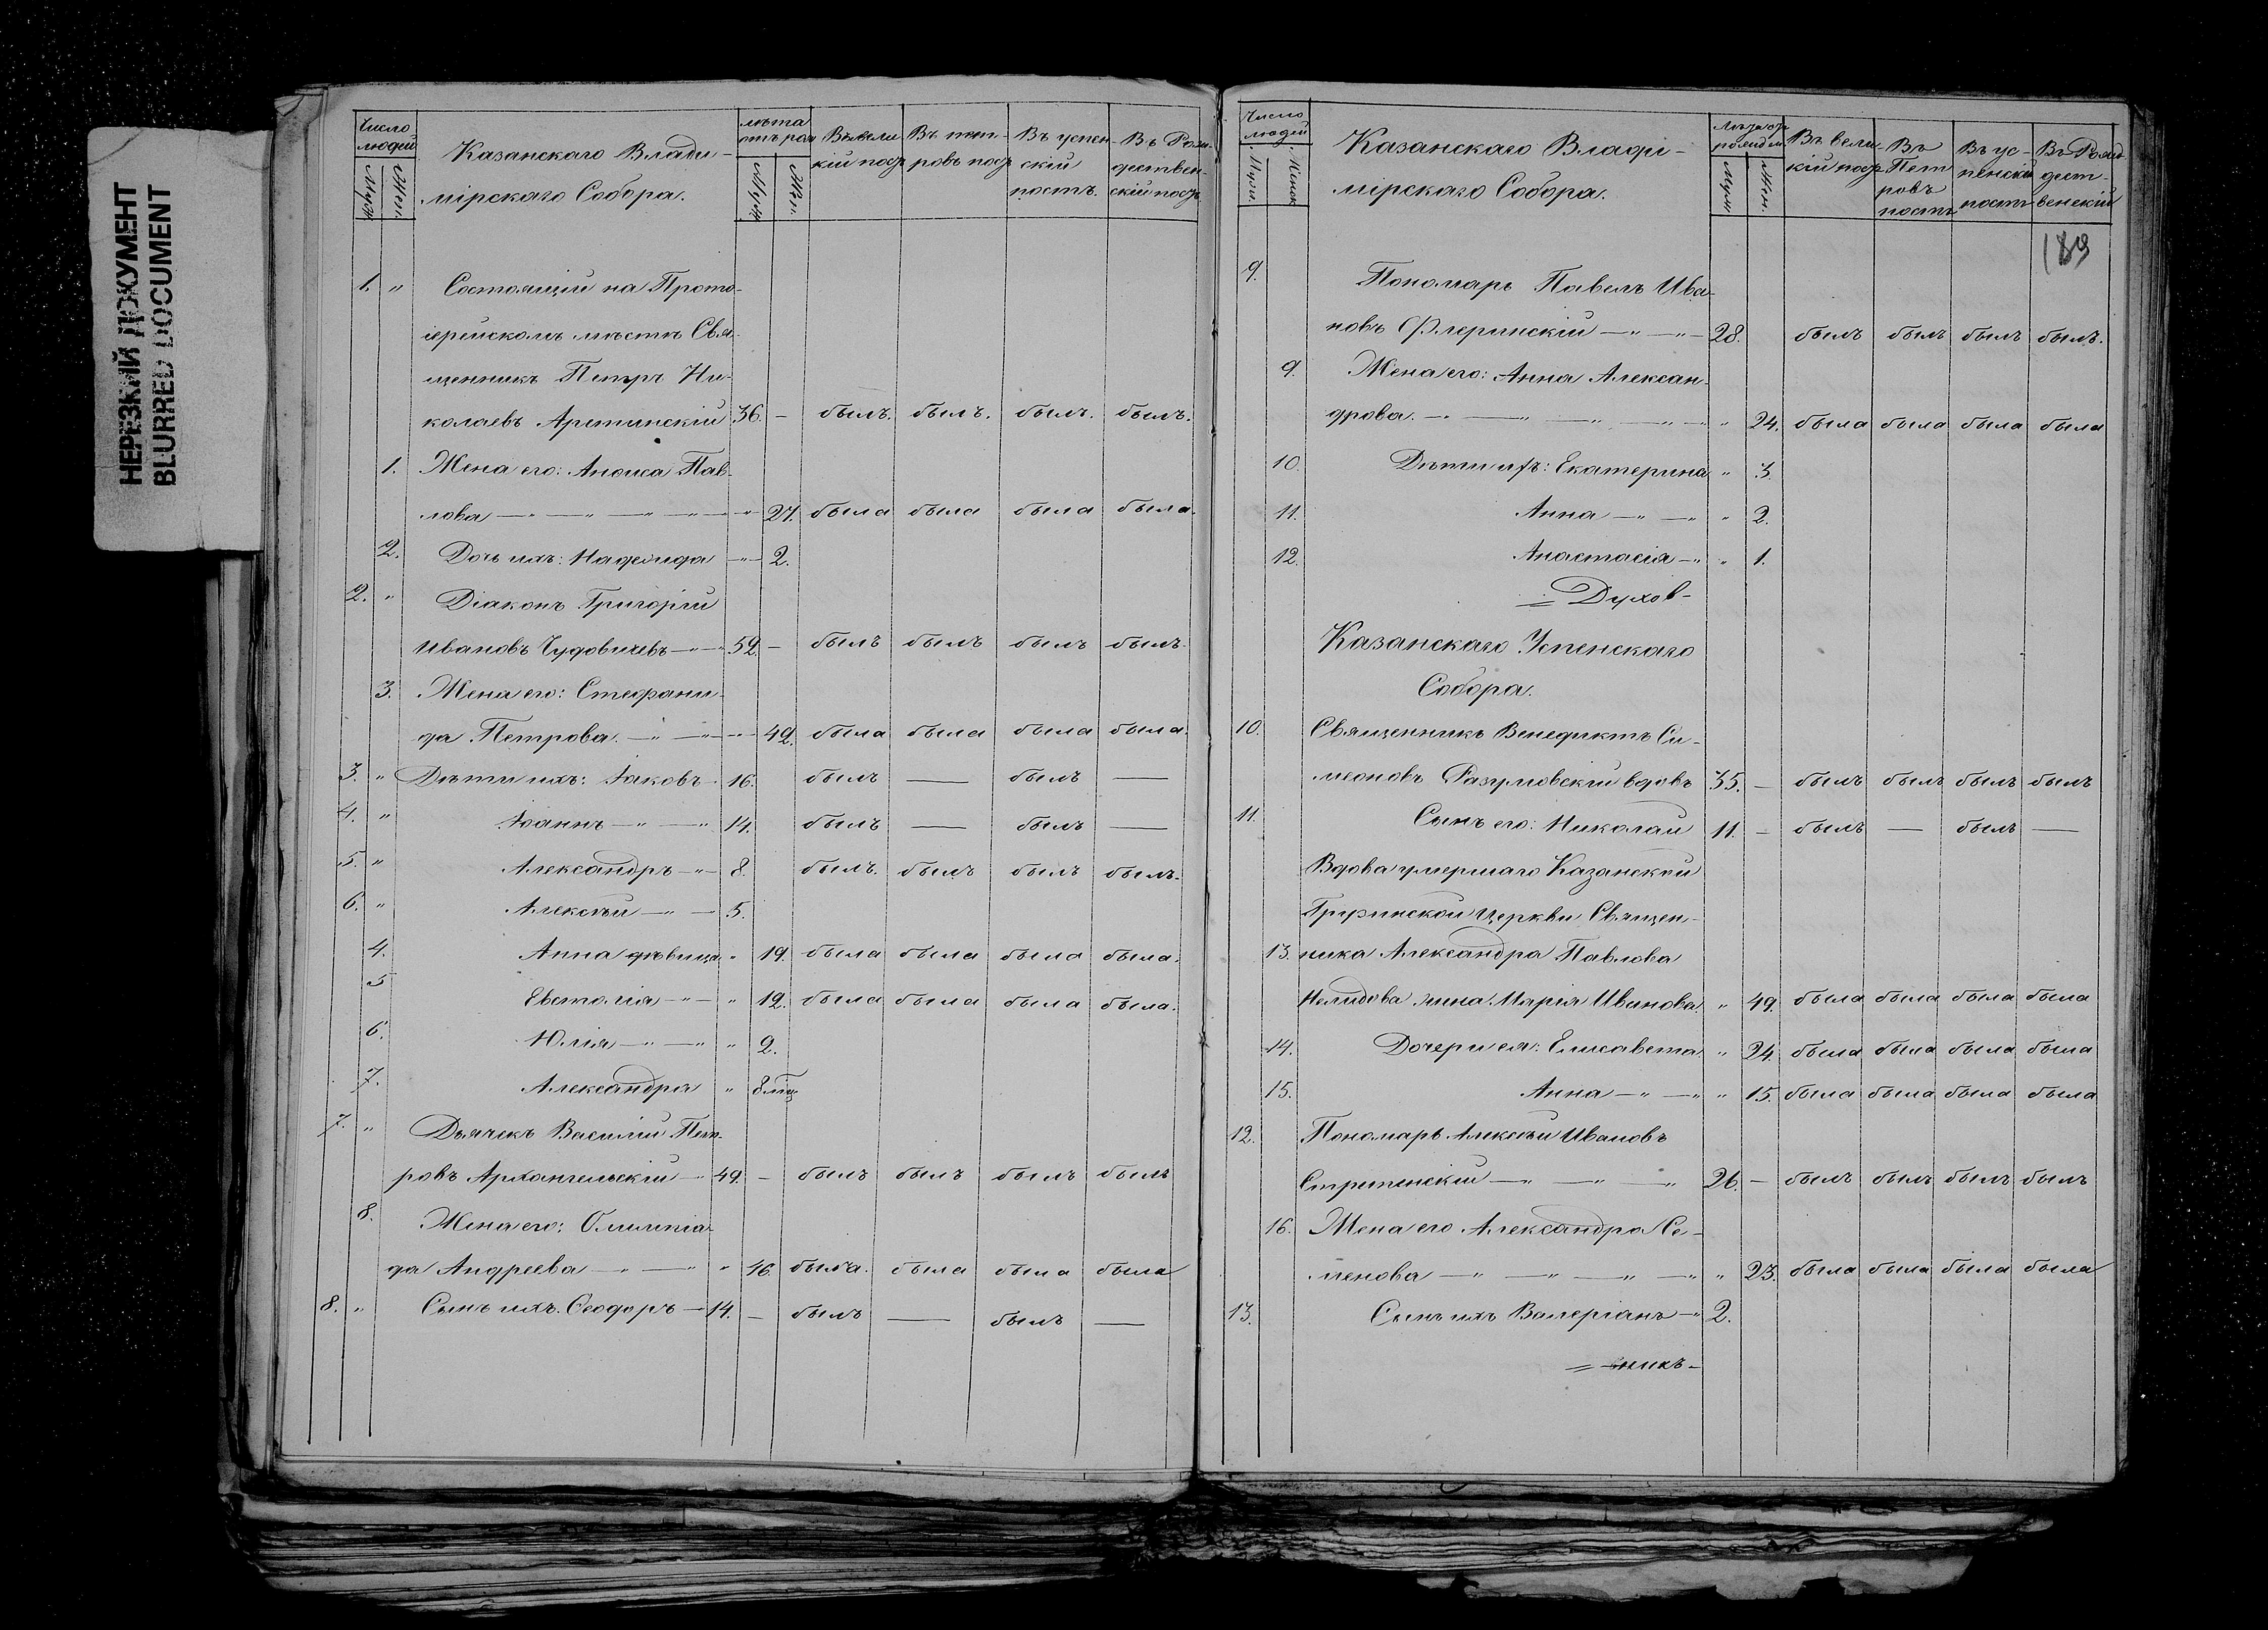 НЕРЕЗКИЙ ДОКУМЕНТ
BLURRED DOCUMENT
Число людей
Муж. Жен.
Казанскаго Влади-
мірскаго Собора.
лѣта отъ рож
Муж Жен.
Въ вели кій постъ
Въ пет- ровъ постъ
Въ успен- скій постъ.
Въ Рож- дествен- скій постъ
1. " Состоящій на Прото-
іерейскомъ мѣстѣ Свя-
щенникъ Петръ Ни-
колаевъ Аристинскій 36. — былъ. былъ. былъ. былъ.
1. Жена его: Анфиса Пав-
лова — " — " — " — " — 27. была была была была.
2. Дочь ихъ: Надежда — " — 2.
2. " Діаконъ Григорій
Ивановъ Чудовичевъ — " — 52. — былъ былъ былъ былъ.
3. Жена его: Стефани-
да Петрова. — " — " — " — 42. была была была была.
3. " Дѣти ихъ: Іаковъ — 16. былъ — былъ —
4. " Іоаннъ — " — " 14. былъ — былъ —
5. " Александръ — " — 8. былъ. былъ былъ былъ.
6. " Алексѣй — " — 5.
4. Анна дѣвица " 19. была была была была.
5 Евстолія — " — " 12. была была была была.
6. Юлія — " — " " 2.
7. Александра " 8 мѣц
7. " Дьячекъ Василій Пет-
ровъ Архангельскій — " 49. — былъ былъ былъ былъ
8. Жена его: Олимпіа-
да Андреева — " — " " 46. была. была была была
8. " Сынъ ихъ. Ѳеодоръ — 14. — былъ — былъ —
Число людей
Муж. Женск
Казанскаго Влади-
мірскаго Собора.
Лѣта отъ рожден
Муж Жен.
Въ вели кій постъ
Въ Пет ровъ постъ
Въ ус- пенскій постъ
Въ Рожд- дест- венскій
189
9. Пономарь Павелъ Ива-
новъ Флеринскій — " — " — 28. былъ былъ былъ былъ.
9. Жена его: Анна Алексан-
дрова. — " — " — " — " — " 24. была была была была
10. Дѣти ихъ: Екатерина " 3.
11. Анна — " — " " 2.
12. Анастасія — " " 1.
= Духов-
Казанскаго Успенскаго
Собора.
10. Священникъ Венедиктъ Си-
меоновъ Разумовскій вдовъ 35. — былъ былъ былъ былъ
11. Сынъ его: Николай 11. — былъ — былъ —
Вдова умершаго Казанской
Грузинской Церкви Священ-
13. ника Александра Павлова
Нелидова жена Марія Иванова. " 49. была была была была
14. Дочери ея: Елисавета " 24. была была была была
15. Анна — " — " " 15. была была была была
12. Пономарь Алексѣй Ивановъ
Стрѣтенскій — " — " — " 26. — былъ былъ былъ былъ
16. Жена его Александра Се-
менова — " — " — " — " " 23. была была была была
13. Сынъ ихъ Валеріанъ — " 2.
= никъ-